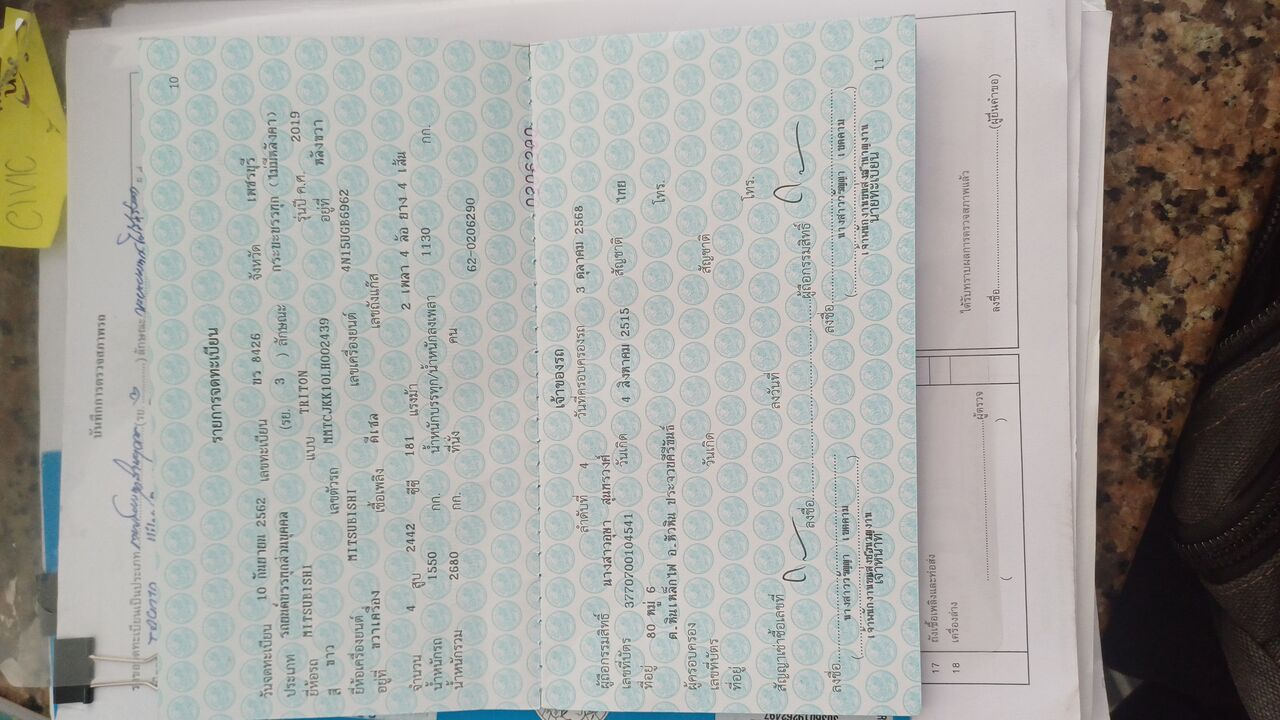 CIVIC
บันทึกการตรวจสภาพรถ
10
รายการจดทะเบียน
วันจดทะเบียน 10 กันยายน 2562 เลขทะเบียน ขว 8426 จังหวัด เพชรบุรี
ประเภท รถยนต์บรรทุกส่วนบุคคล (รย. 3 ) ลักษณะ กระบะบรรทุก (ไม่มีหลังคา)
ยี่ห้อรถ MITSUBISHI แบบ TRITON รุ่นปี ค.ศ. 2019
สี ขาว เลขตัวรถ MMTCJKK10LH002439 อยู่ที่ หลังขวา
ยี่ห้อเครื่องยนต์ MITSUBISHI เลขเครื่องยนต์ 4N15UGB6962
อยู่ที่ ขวาเครื่อง เชื้อเพลิง ดีเซล เลขถังแก๊ส
จำนวน 4 สูบ 2442 ซีซี 181 แรงม้า 2 เพลา 4 ล้อ ยาง 4 เส้น
น้ำหนักรถ 1550 กก. น้ำหนักบรรทุก/น้ำหนักลงเพลา 1130 กก.
น้ำหนักรวม 2680 กก. ที่นั่ง คน 62-0206290
เจ้าของรถ
ลำดับที่ 4 วันที่ครอบครองรถ 3 ตุลาคม 2568
ผู้ถือกรรมสิทธิ์ นางสาวอุษา สุนทรวงศ์
เลขที่บัตร 3770700104541 วันเกิด 4 สิงหาคม 2515 สัญชาติ ไทย
ที่อยู่ 80 หมู่ 6 โทร.
ต.หินเหล็กไฟ อ.หัวหิน ประจวบคีรีขันธ์
ผู้ครอบครอง
เลขที่บัตร วันเกิด สัญชาติ
ที่อยู่ โทร.
สัญญาเช่าซื้อเลขที่ ลงวันที่
ลงชื่อ ผู้ถือกรรมสิทธิ์
ลงชื่อ ลงชื่อ
เจ้าหน้าที่ นายทะเบียน
11
17 ถังเชื้อเพลิงและท่อส่ง
18 เครื่องล่าง
ผู้ตรวจ
ได้รับทราบผลการตรวจสภาพแล้ว
ลงชื่อ (ผู้ยื่นคำขอ)